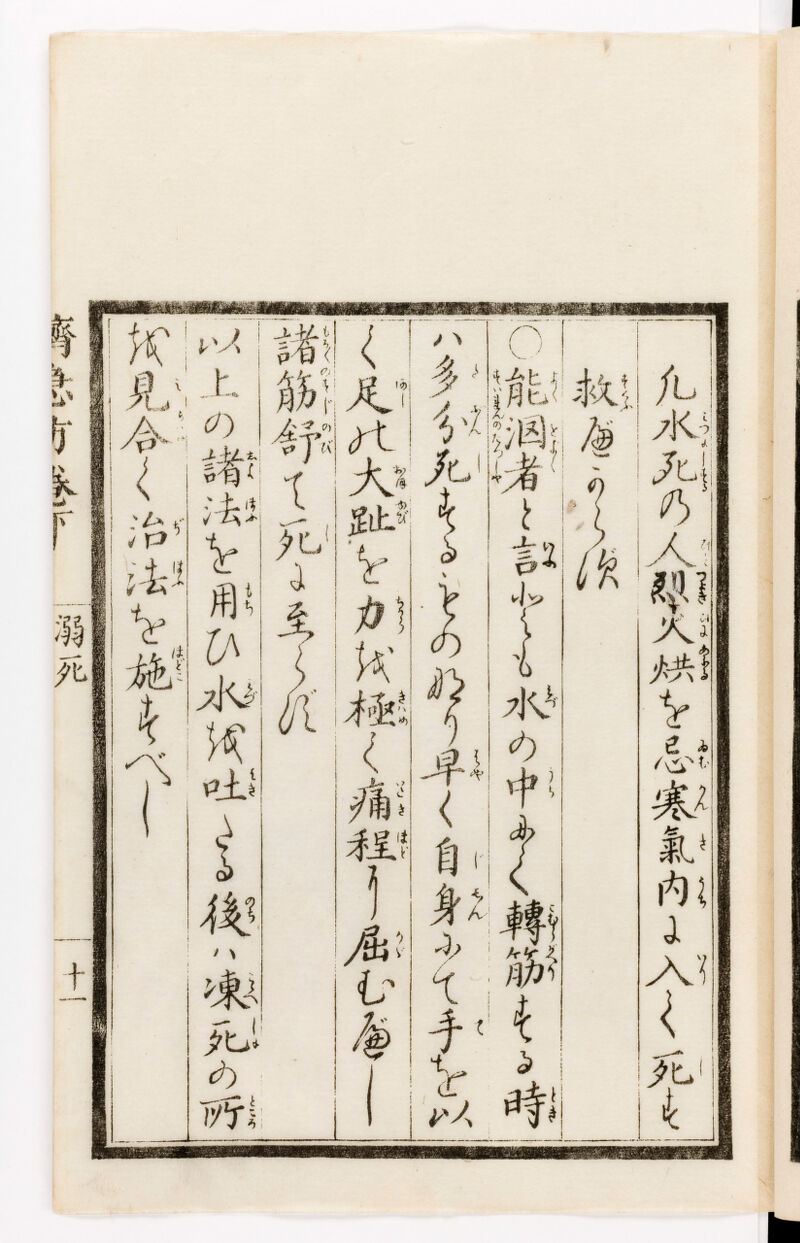 凡水死の人烈火烘を忌寒氣内に入て死す
救べからず
○能泅者と言ども水の中にて轉筋する時
ハ多分死するもの也早く自身にて手を以
て足の大趾を力を極て痛程に屈むべし
諸筋舒て死に至らず
以上の諸法を用ひ水を吐たる後ハ凍死の所
を見合て治法を施すべし
濟急方卷下
溺死
十一